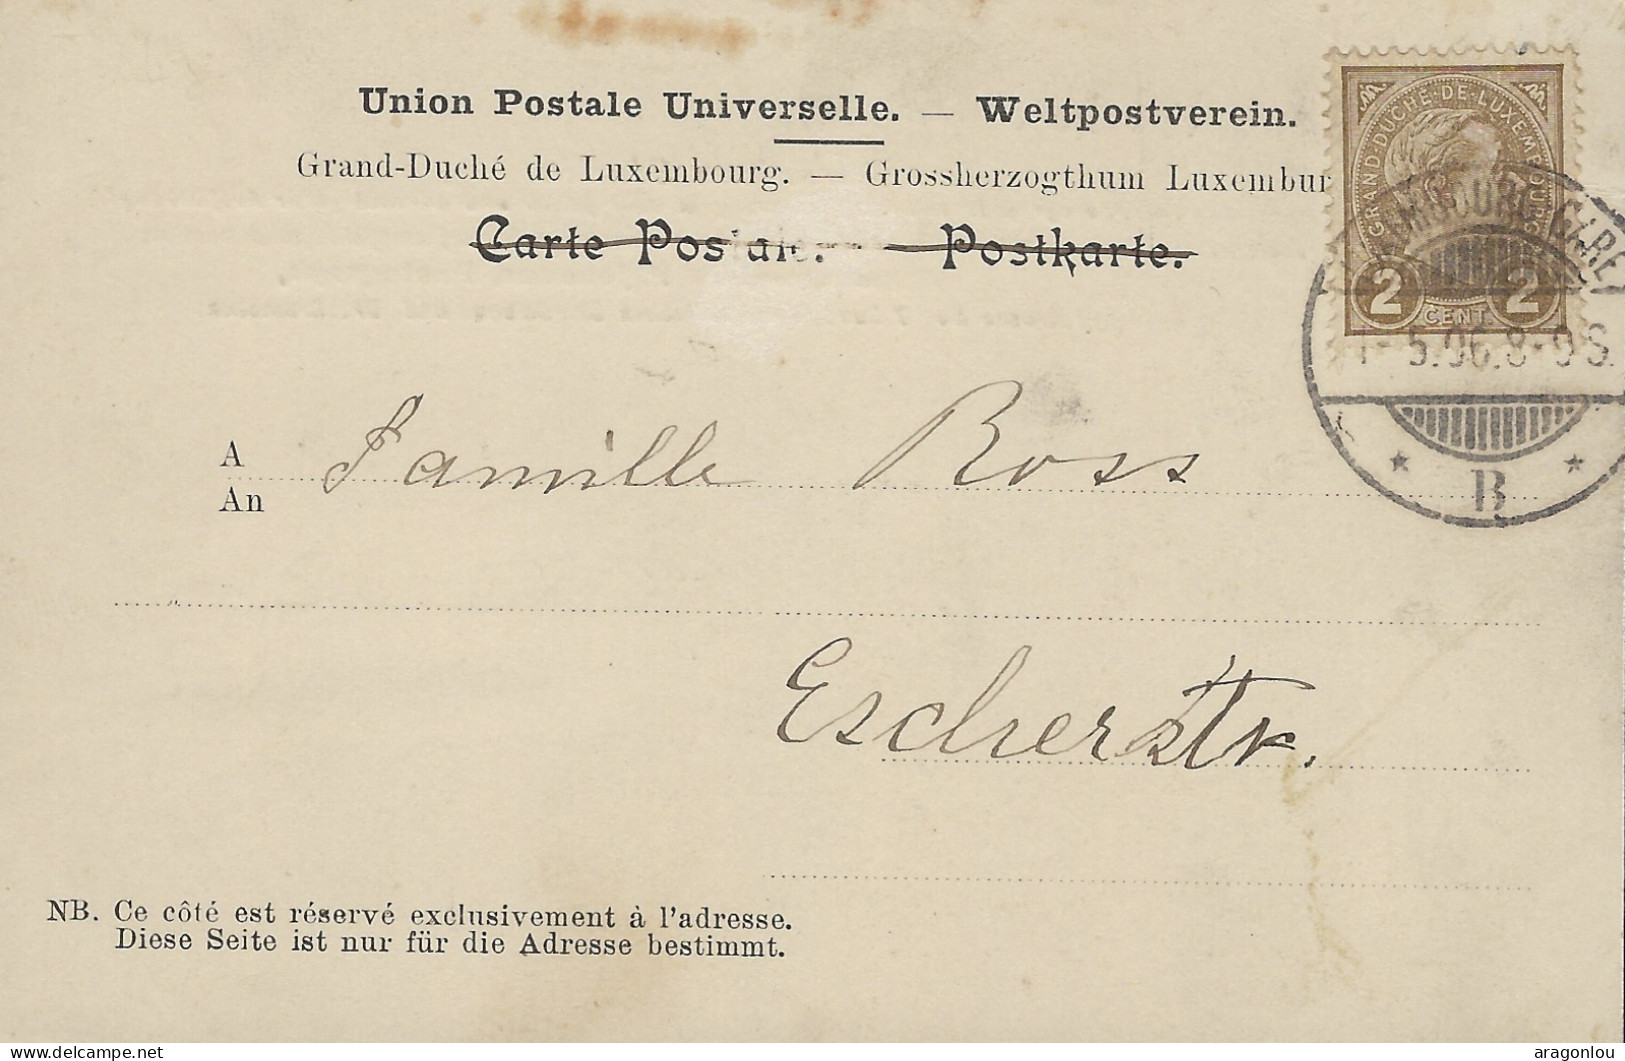 Union Postale Universelle. — Weltpostverein.
Grand-Duché de Luxembourg. — Grossherzogthum Luxembur
Carte Postale. — Postkarte.
GRAND-DUCHÉ-DE-LUXEMBOURG
2 CENT. 2
LUXEMBOURG-GARE
1-5.06.8-9S.
* B *
A Famille Ross
An
Escherstr.
NB. Ce côté est réservé exclusivement à l'adresse.
Diese Seite ist nur für die Adresse bestimmt.
delcampe.net
aragonlou